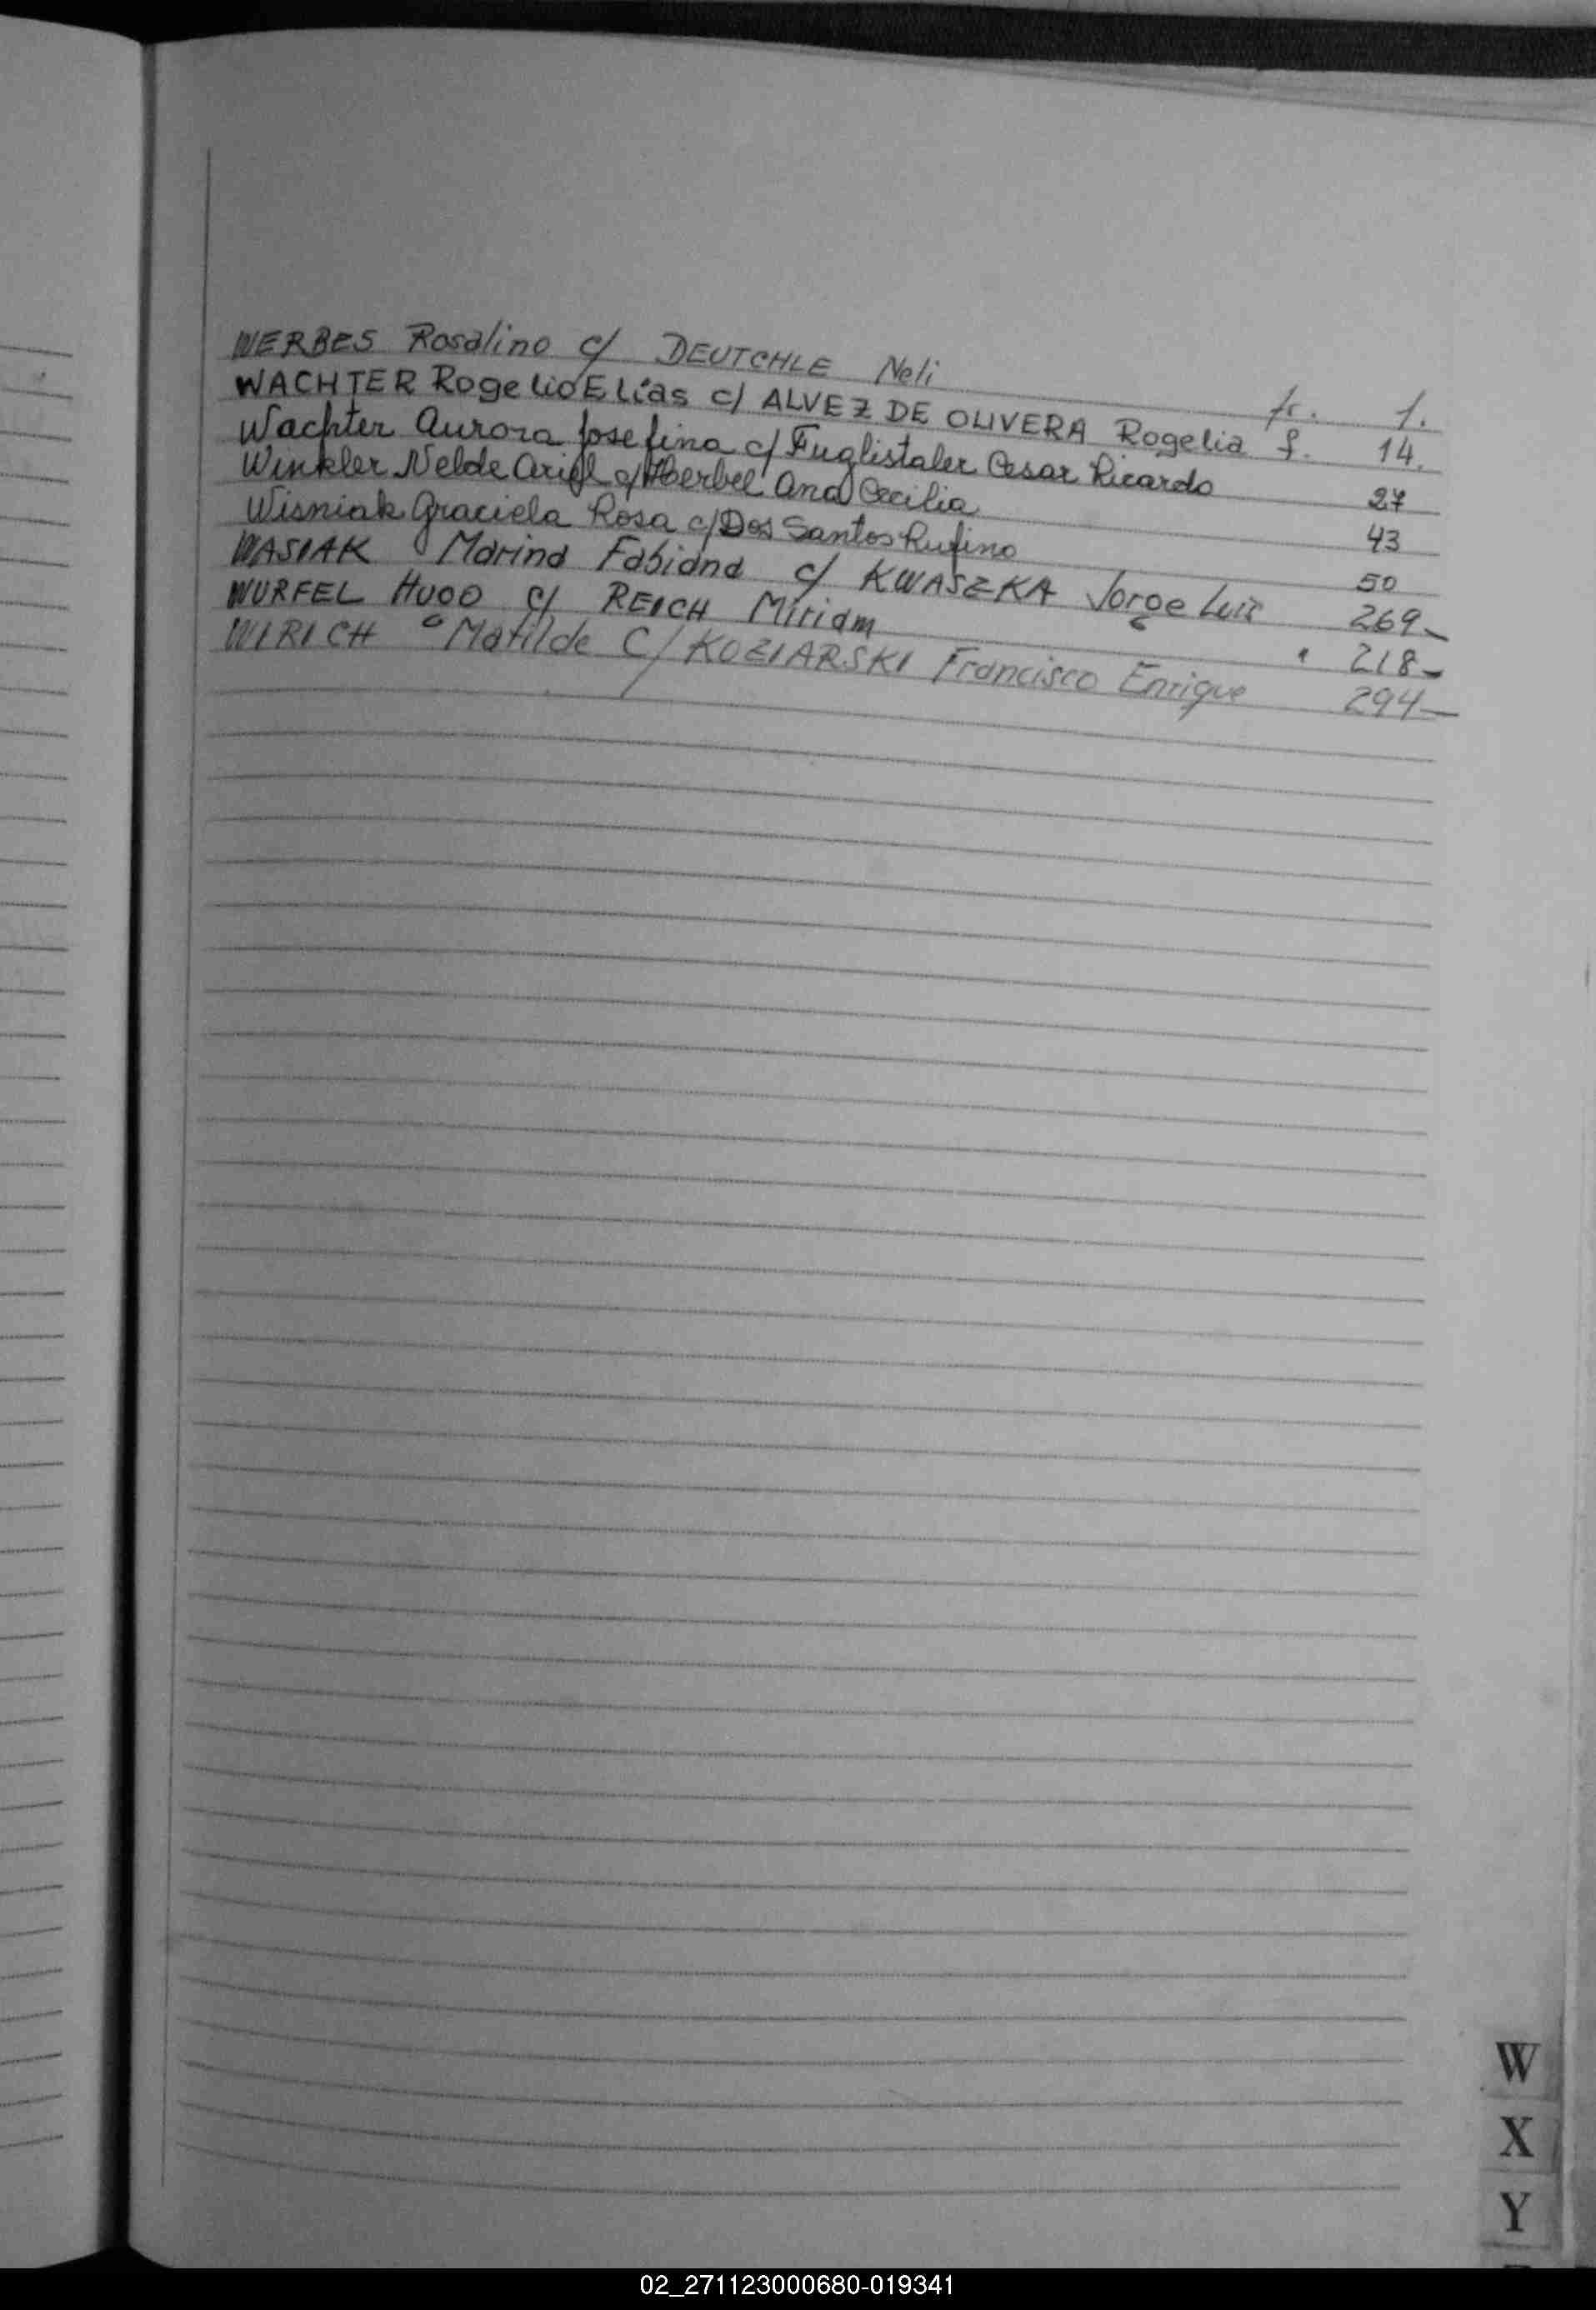 WERBES Rosalino c/ DEUTCHLE Neli fr. 1.
WACHTER Rogelio Elias c/ ALVEZ DE OLIVERA Rogelia f. 14.
Wachter Aurora Josefina c/ Fuglistaler Cesar Ricardo 27
Winkler Nelde Ariel c/ Herbel Ana Cecilia 43
Wisniak Graciela Rosa c/ Dos Santos Rufino 50
WASIAK Marina Fabiana c/ KWASZKA Jorge Luis 269-
WURFEL HUGO c/ REICH Miriam " 218-
WIRICH Matilde C/ KOZIARSKI Francisco Enrique 294-
W
X
Y
02_271123000680-019341